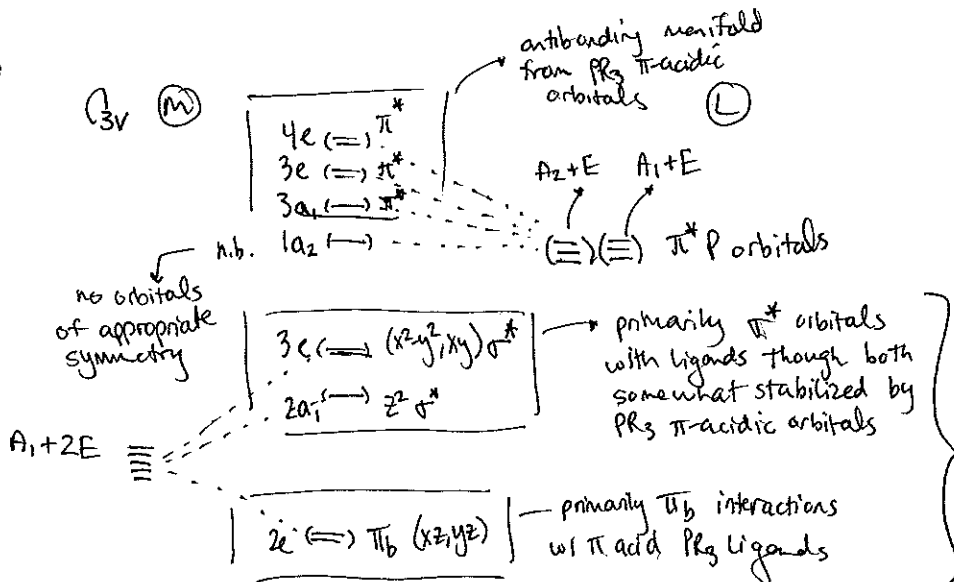 antibonding manifold
from PR₃ π-acidic
orbitals
C₃ᵥ (M)
(L)
4e (=) π*
3e (=) π*
3a₁ (—) π*
n.b. 1a₂ (—)
A₂+E A₁+E
(≡)(≡) π* P orbitals
no orbitals
of appropriate
symmetry
3e (=) (x²-y², xy) σ*
2a₁ (—) z² σ*
primarily σ* orbitals
with ligands though both
somewhat stabilized by
PR₃ π-acidic orbitals
A₁+2E
2e (=) π_b (xz, yz)
primarily π_b interactions
w/ π acid PR₃ ligands